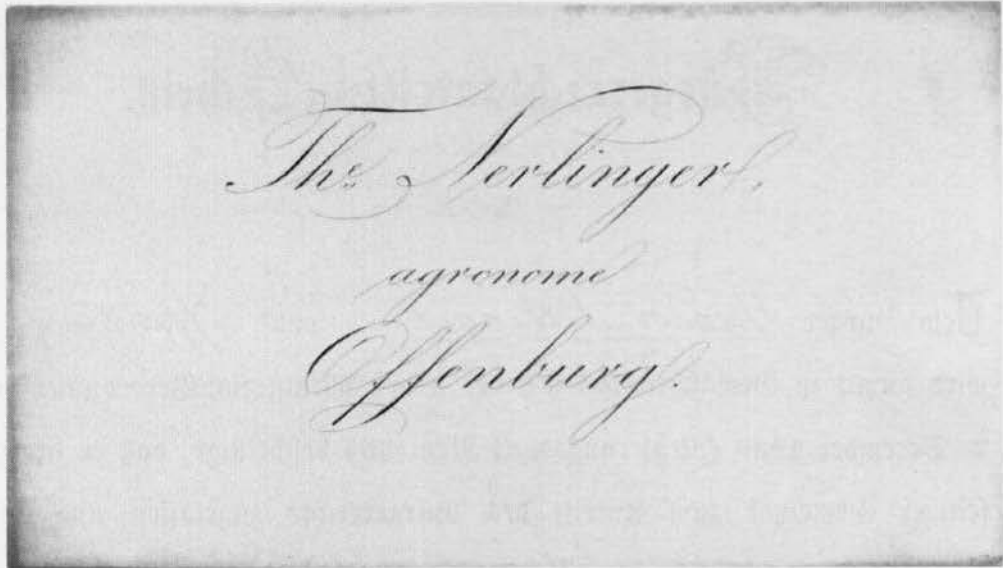 The Nerlinger,
agronome
Offenburg.